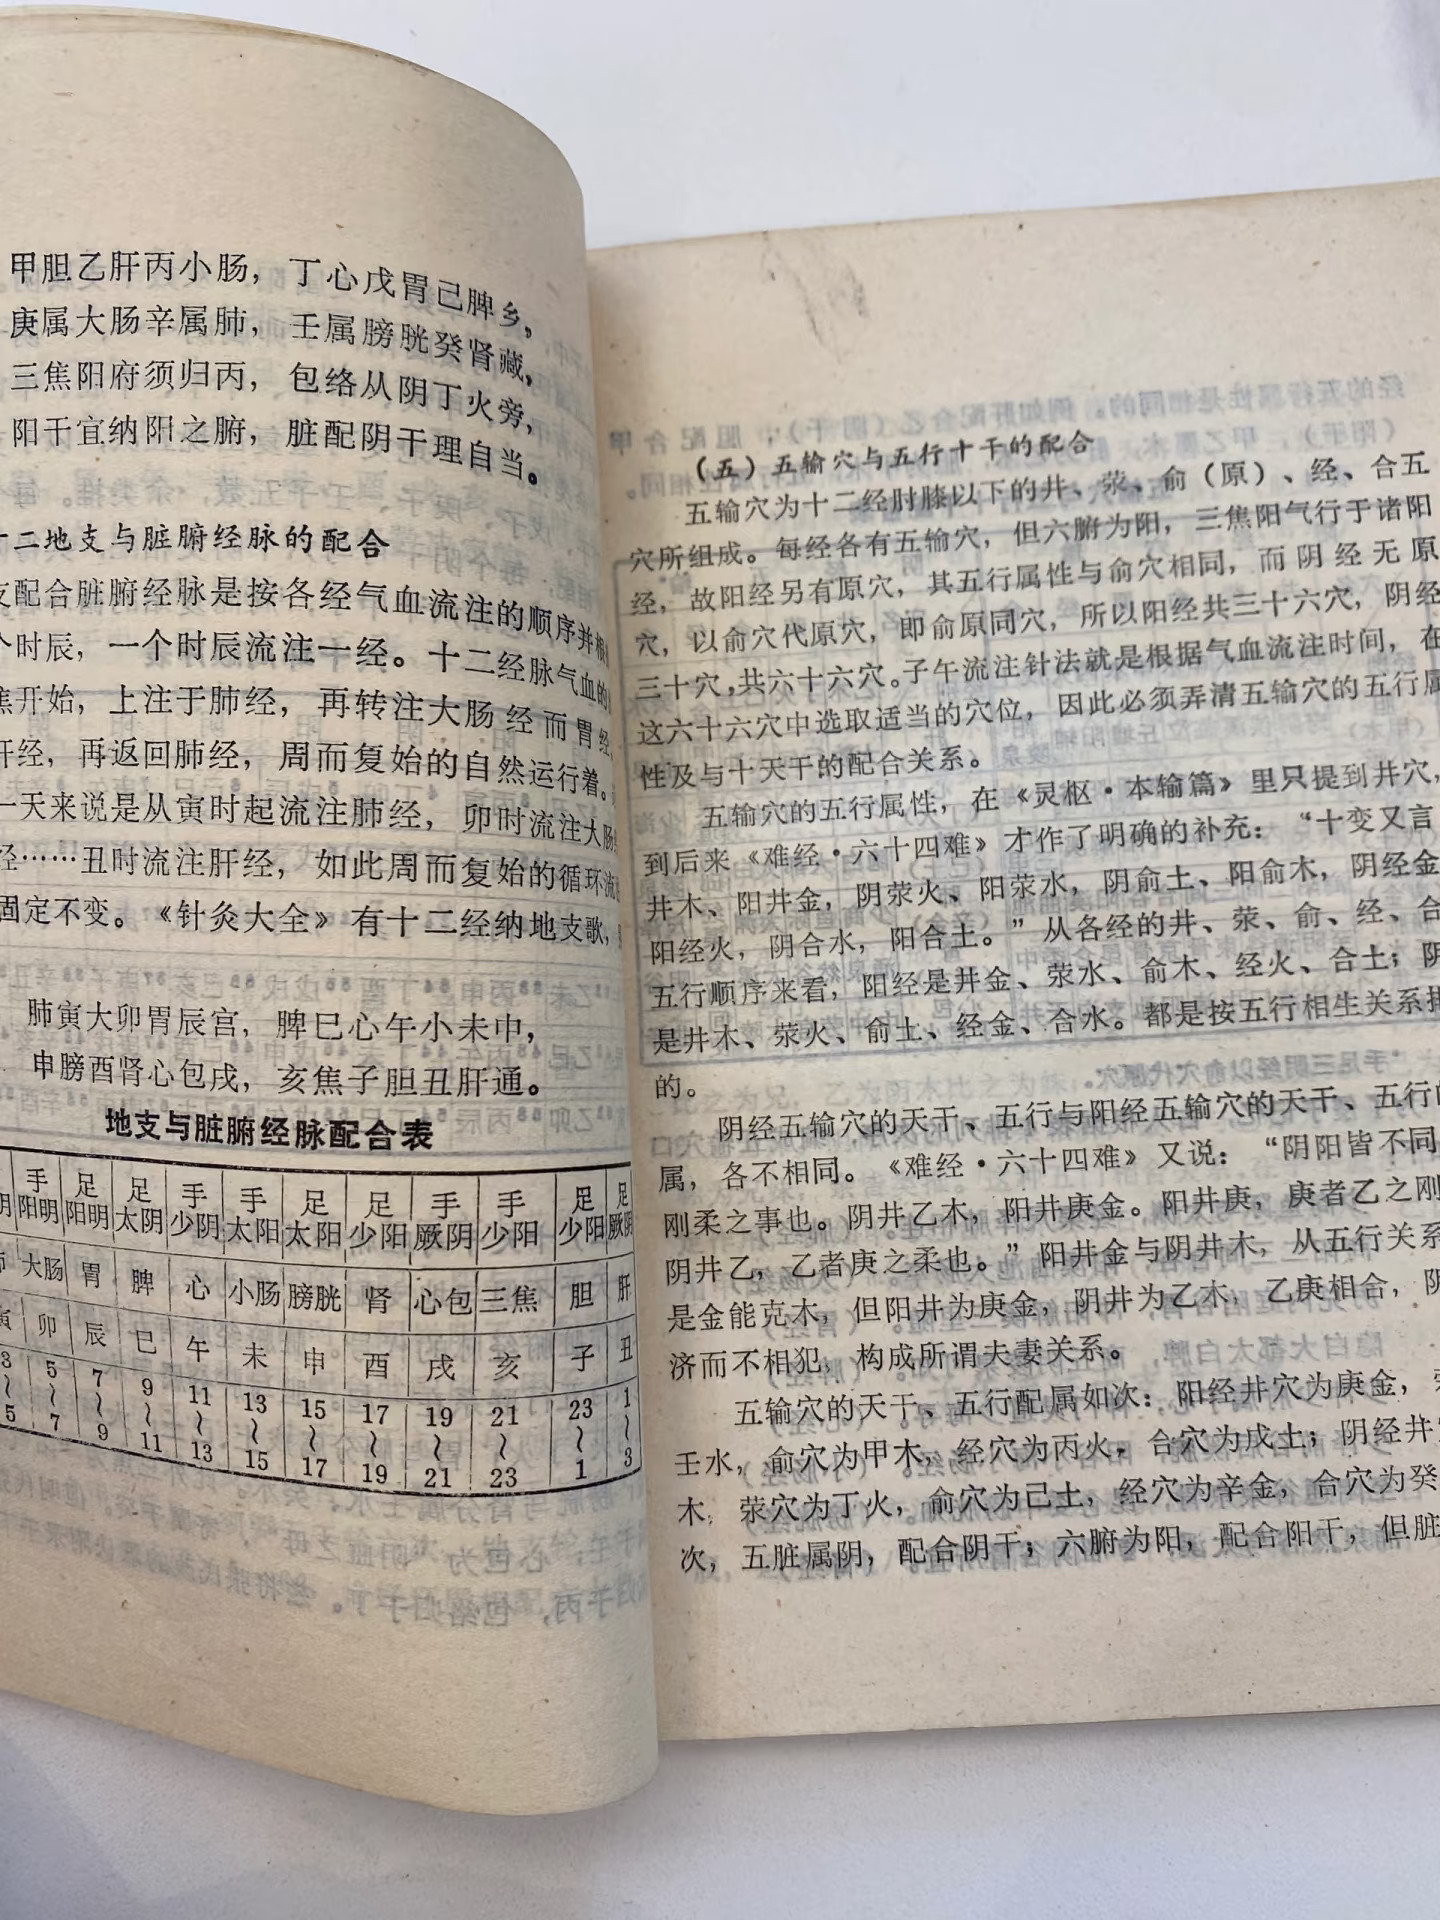 甲胆乙肝丙小肠，丁心戊胃己脾乡，
庚属大肠辛属肺，壬属膀胱癸肾藏，
三焦阳府须归丙，包络从阴丁火旁，
阳干宜纳阳之腑，脏配阴干理自当。
十二地支与脏腑经脉的配合
支配合脏腑经脉是按各经气血流注的顺序并根
个时辰，一个时辰流注一经。十二经脉气血的
焦开始，上注于肺经，再转注大肠经而胃经
肝经，再返回肺经，周而复始的自然运行着。
一天来说是从寅时起流注肺经，卯时流注大肠
经……丑时流注肝经，如此周而复始的循环流
固定不变。《针灸大全》有十二经纳地支歌，
肺寅大卯胃辰宫，脾巳心午小未中，
申膀酉肾心包戌，亥焦子胆丑肝通。
地支与脏腑经脉配合表
阴 手阳明 足阳明 足太阴 手少阴 手太阳 足太阳 足少阳 手厥阴 手少阳 足少阳 足厥阴
肺 大肠 胃 脾 心 小肠 膀胱 肾 心包 三焦 胆 肝
寅 卯 辰 巳 午 未 申 酉 戌 亥 子 丑
3～5 5～7 7～9 9～11 11～13 13～15 15～17 17～19 19～21 21～23 23～1 1～3
（五）五输穴与五行十干的配合
五输穴为十二经肘膝以下的井、荥、俞（原）、经、合五
穴所组成。每经各有五输穴，但六腑为阳，三焦阳气行于诸阳
经，故阳经另有原穴，其五行属性与俞穴相同，而阴经无原
穴，以俞穴代原穴，即俞原同穴，所以阳经共三十六穴，阴经
三十穴，共六十六穴。子午流注针法就是根据气血流注时间，在
这六十六穴中选取适当的穴位，因此必须弄清五输穴的五行属
性及与十天干的配合关系。
五输穴的五行属性，在《灵枢·本输篇》里只提到井穴，
到后来《难经·六十四难》才作了明确的补充：“十变又言
井木、阳井金，阴荥火、阳荥水，阴俞土、阳俞木，阴经金
阳经火，阴合水，阳合土。”从各经的井、荥、俞、经、合
五行顺序来看，阳经是井金、荥水、俞木、经火、合土；阴
是井木、荥火、俞土、经金、合水。都是按五行相生关系排
的。
阴经五输穴的天干、五行与阳经五输穴的天干、五行的
属，各不相同。《难经·六十四难》又说：“阴阳皆不同
刚柔之事也。阴井乙木，阳井庚金。阳井庚，庚者乙之刚
阴井乙，乙者庚之柔也。”阳井金与阴井木，从五行关系
是金能克木，但阳井为庚金，阴井为乙木，乙庚相合，阴
济而不相犯，构成所谓夫妻关系。
五输穴的天干、五行配属如次：阳经井穴为庚金，荥
壬水，俞穴为甲木，经穴为丙火，合穴为戊土；阴经井穴
木，荥穴为丁火，俞穴为己土，经穴为辛金，合穴为癸
次，五脏属阴，配合阴干；六腑为阳，配合阳干，但脏